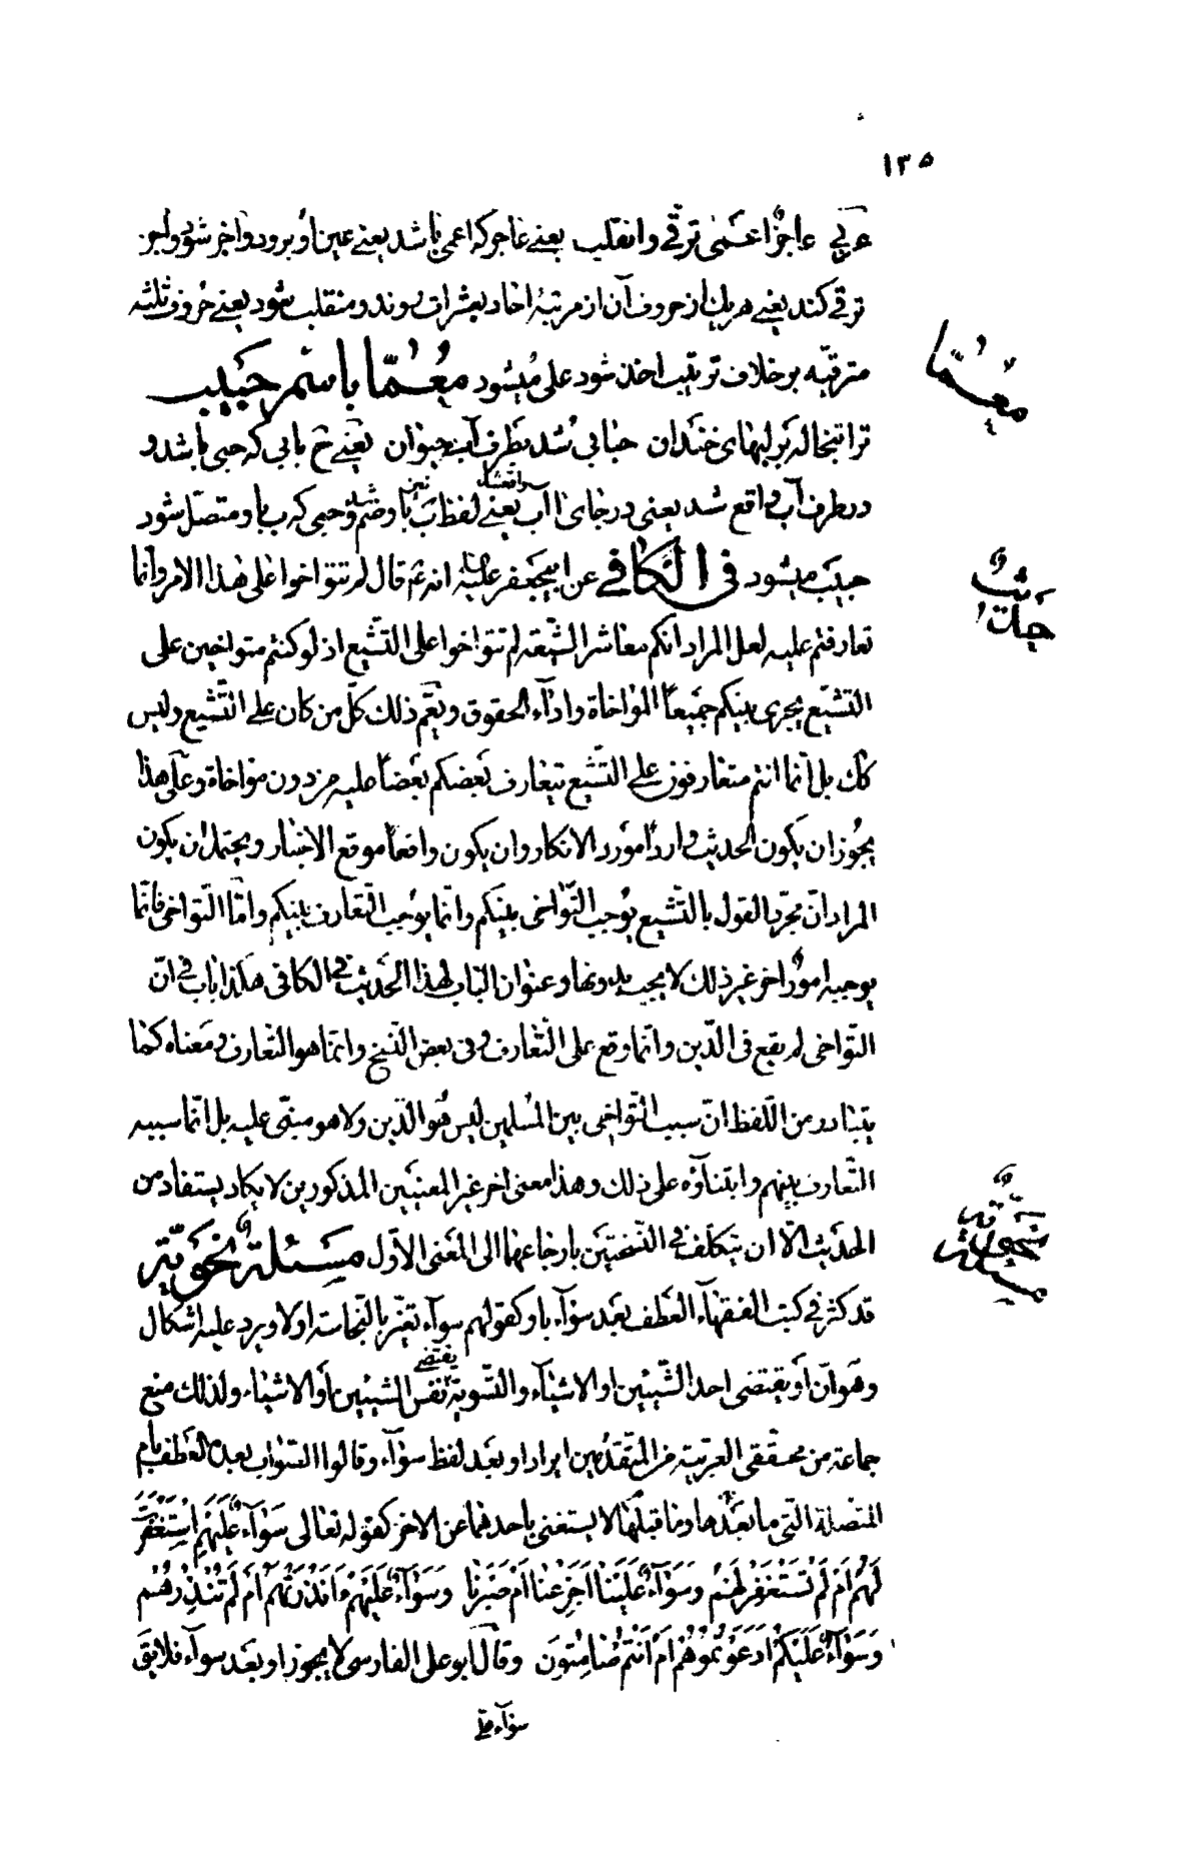 ١٣٥
عربي عاجزا عمى ترقى وانقلب يعني عاجز كه اعمى باشد يعني عين او برود واجز شود ولجز
ترقى كند يعني هر يك از حروف آن از مرتبهٔ احاد بعشرات روند و منقلب شود يعني حروف ثلثه
مترقيه بر خلاف ترتيب اخذ شود على ميشود معمّا باسم حبيب
معمّا
ترا تبخاله بر لبهاى خندان حبابى شد بطرف آب حيوان يعني بابى كه حبى باشد و
در طرف آب واقع شد يعنى در جاى ااب يعني لفظ ب با و ضم و حبى كه ب با و متصل شود
واقع شد
حبيب ميشود في الكافي عن ابيجعفر عليه انه قال لم تتواخوا على هذا الامر وانما
حديث
تعارفتم عليه لعل المراد انكم معاشر الشيعة لم تتواخوا على التشيع اذ لو كنتم متواخين على
التشيع يجرى بينكم جميعا المواخاة واداء الحقوق ويعم ذلك كل من كان على التشيع وليس
كك بل انما انتم متعارفون على التشيع يتعارف بعضكم بعضا عليه من دون مواخاة وعلى هذا
يجوز ان يكون الحديث واردا مورد الانكار وان يكون واقعا موقع الاخبار ويحتمل ان يكون
المراد ان مجرد القول بالتشيع يوجب التواخى بينكم وانما يوجب التعارف بينكم واما التواخى فانما
يوجبه امور اخر غير ذلك لا يجب بدونها وعنوان الباب لهذا الحديث في الكافى هكذا باب في ان
التواخى لم يقع فى الدين وانما وقع على التعارف وفى بعض النسخ وانما هو التعارف ومعناه كما
يتبادر من اللفظ ان سبب التواخى بين المسلمين ليس هو الدين ولا هو مبنى عليه بل انما سببه
التعارف بينهم وابتناؤه على ذلك وهذا معنى اخر غير المعنيين المذكورين لا يكاد يستفاد من
الحديث الا ان يتكلف في النسختين بارجاعهما الى المعنى الاول مسئلة نحوية
مسئلة نحوية
قد كثر في كتب الفقهاء العطف بعد سواء باو كقولهم سواء تغير بالنجاسة او لا ويرد عليه اشكال
وهو ان او يقتضى احد الشيئين او الاشياء والتسوية يقتضى نفس الشيئين او الاشياء ولذلك منع
جماعة من محققى العربية من المتقدمين ايراد او بعد لفظ سواء وقالوا الصواب بعدها العطف بام
المتصلة التى ما بعدها وما قبلها لا يستغنى باحدهما عن الاخر كقوله تعالى سَوَاءٌ عَلَيْهِمْ اَسْتَغْفَرْتَ
لَهُمْ اَمْ لَمْ تَسْتَغْفِرْ لَهُمْ وَسَوَاءٌ عَلَيْنَا اَجَزِعْنَا اَمْ صَبَرْنَا وَسَوَاءٌ عَلَيْهِمْ ءَاَنْذَرْتَهُمْ اَمْ لَمْ تُنْذِرْهُمْ
وَسَوَاءٌ عَلَيْكُمْ اَدَعَوْتُمُوهُمْ اَمْ اَنْتُمْ صَامِتُونَ وقال ابو على الفارسى لا يجوز او بعد سواء فلا يق
سواء على